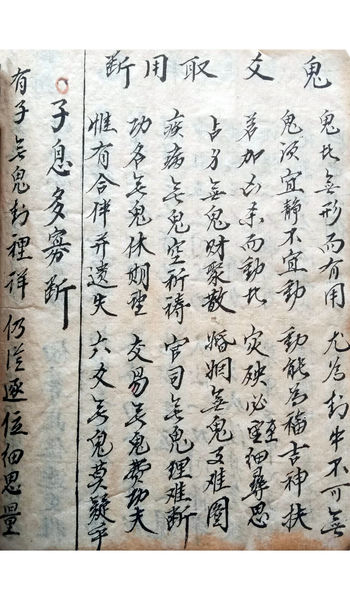 鬼爻取用断
鬼此無形而有用 尤為卦中不可無
鬼須宜静不宜動 動能為福吉神扶
若加凶杀而動此 灾殃必至細尋思
占身無鬼財聚散 婚姻無鬼難圖
疾病無鬼空祈禱 官司無鬼理難断
功名無鬼休期望 交易無鬼費功夫
惟有合伴并遗失 六爻無鬼莫疑乎
子息多寡断
有子無鬼卦裡祥 仍從逐位細思量